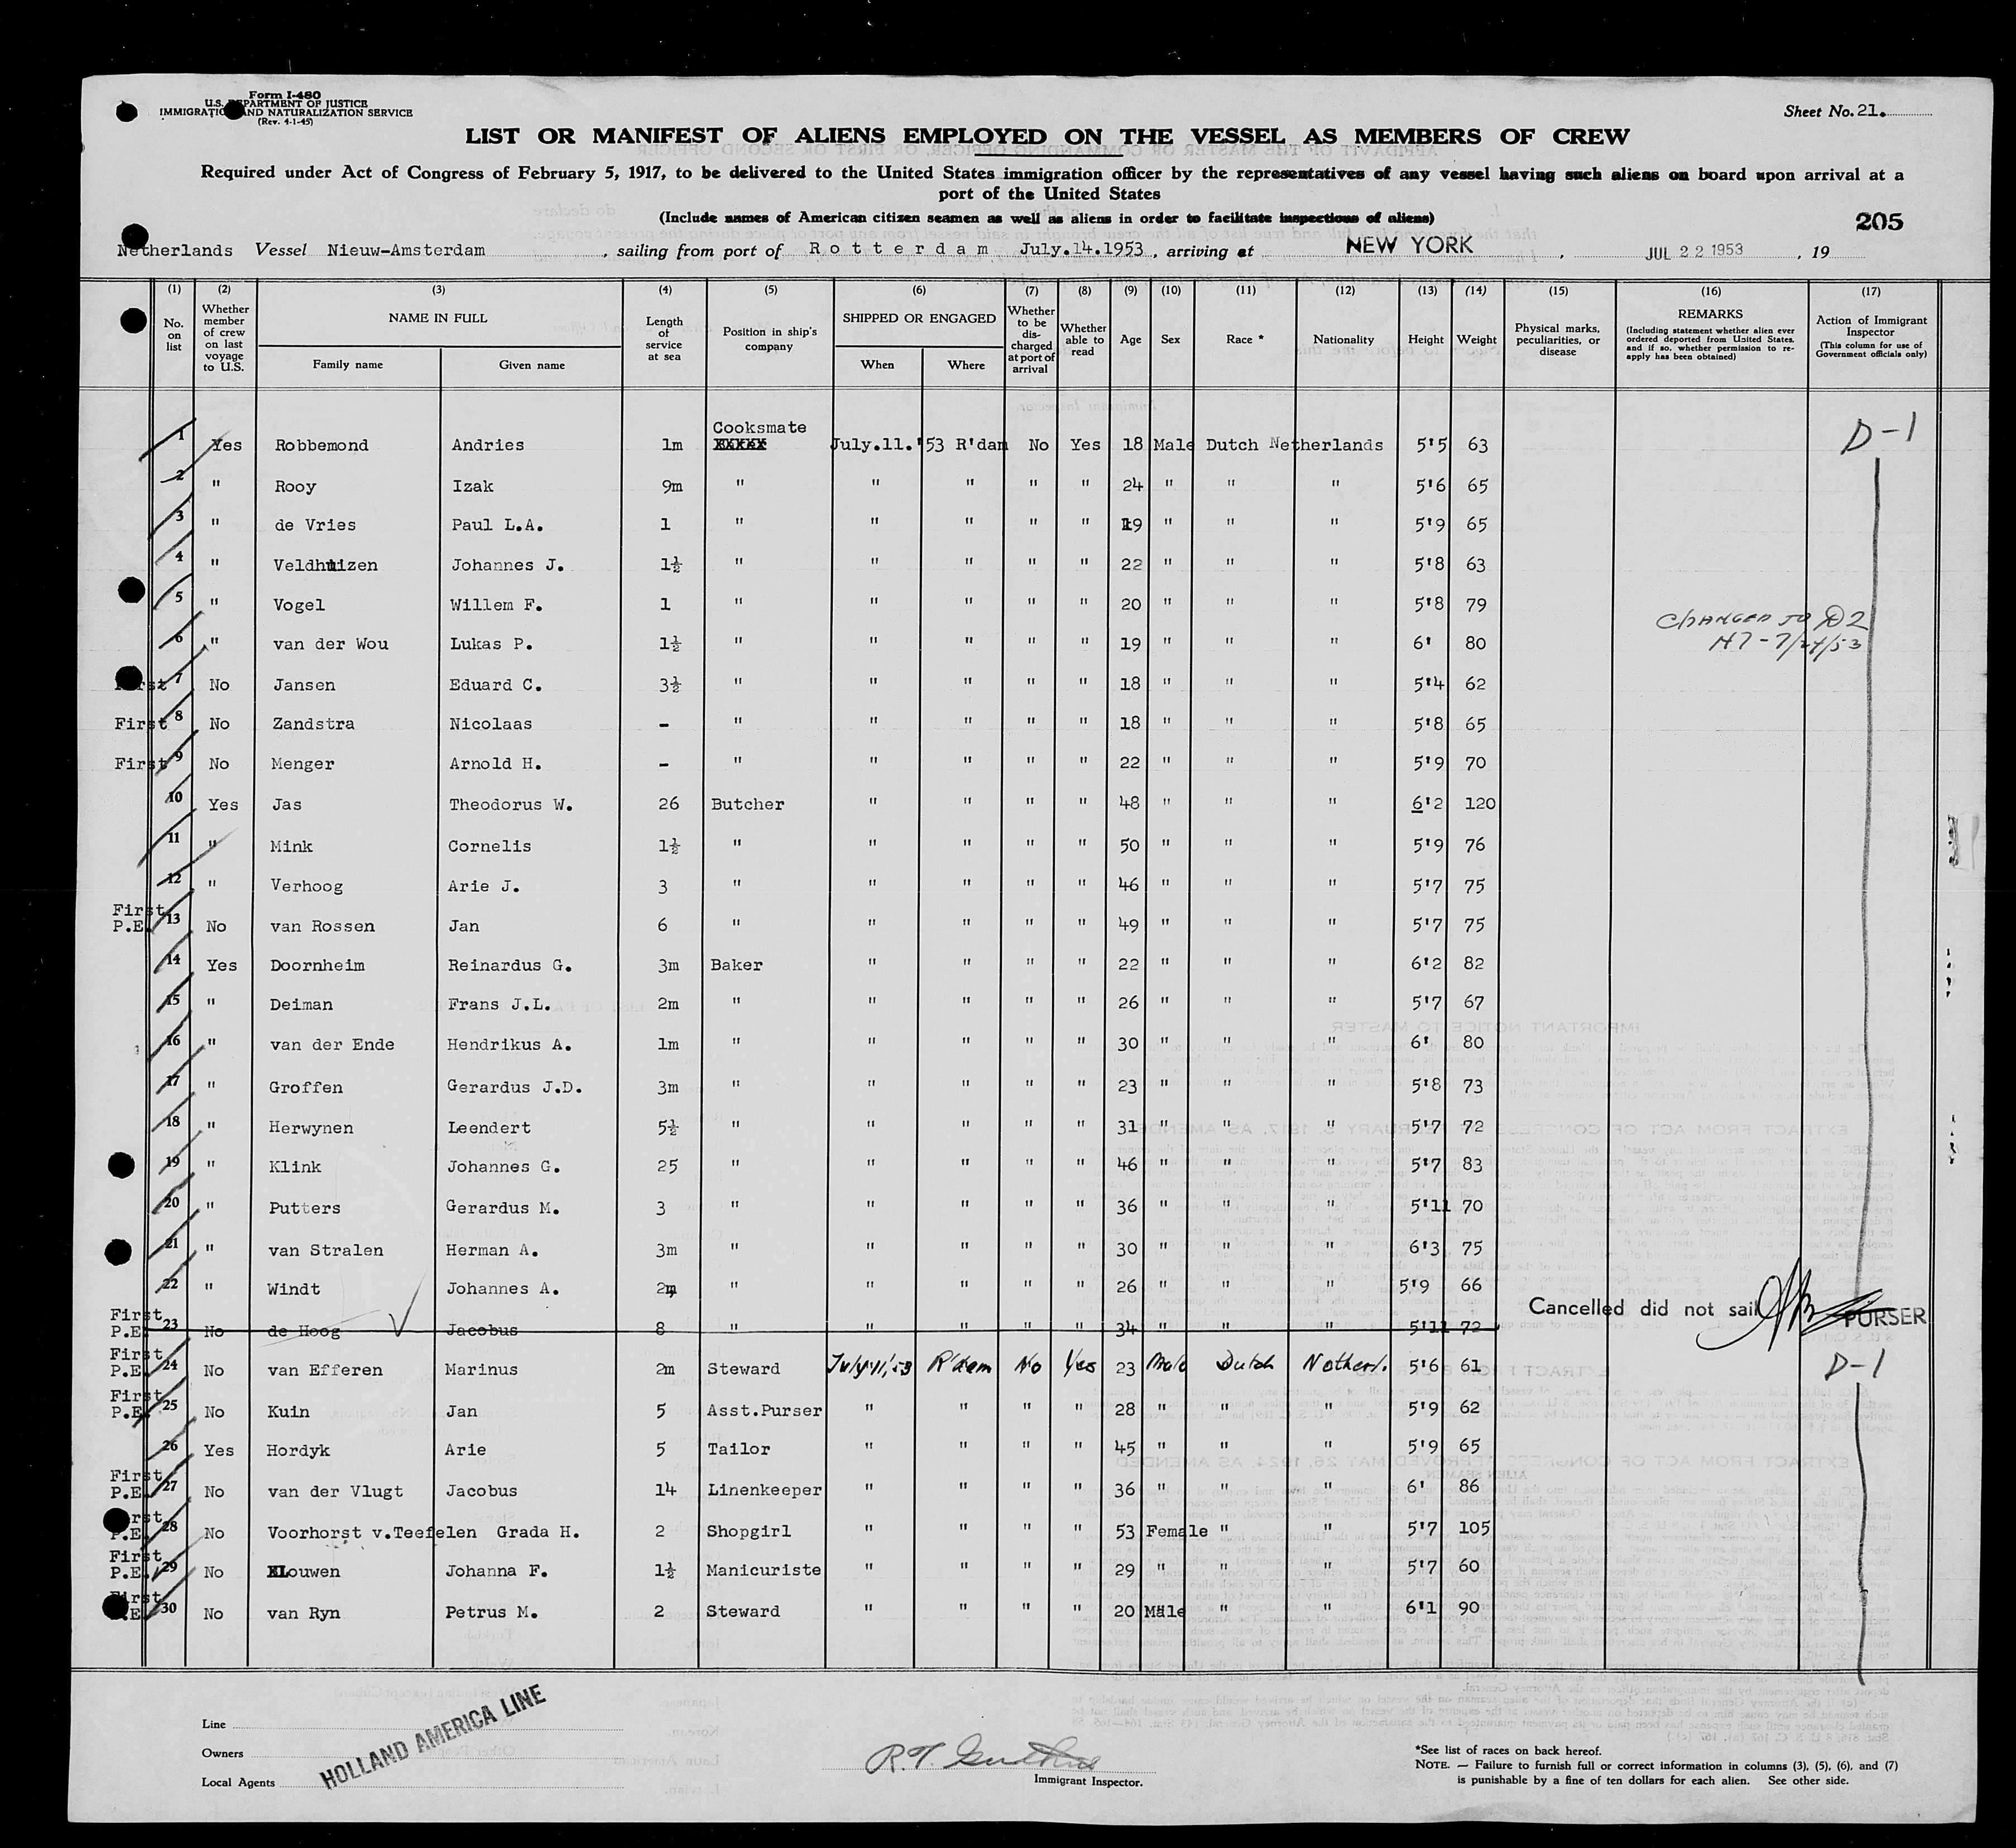 Form I-480
U.S. DEPARTMENT OF JUSTICE
IMMIGRATION AND NATURALIZATION SERVICE
(Rev. 4-1-45)
Sheet No. 21.
LIST OR MANIFEST OF ALIENS EMPLOYED ON THE VESSEL AS MEMBERS OF CREW
Required under Act of Congress of February 5, 1917, to be delivered to the United States immigration officer by the representatives of any vessel having such aliens on board upon arrival at a
port of the United States
(Include names of American citizen seamen as well as aliens in order to facilitate inspections of aliens)
205
Netherlands Vessel Nieuw-Amsterdam , sailing from port of Rotterdam July.14.1953 , arriving at NEW YORK , JUL 22 1953 , 19
(1) (2) (3) (4) (5) (6) (7) (8) (9) (10) (11) (12) (13) (14) (15) (16) (17)
No. on list
Whether member of crew on last voyage to U.S.
NAME IN FULL
Family name
Given name
Length of service at sea
Position in ship's company
SHIPPED OR ENGAGED
When
Where
Whether to be discharged at port of arrival
Whether able to read
Age
Sex
Race *
Nationality
Height
Weight
Physical marks, peculiarities, or disease
REMARKS
(Including statement whether alien ever ordered deported from United States, and if so, whether permission to re-apply has been obtained)
Action of Immigrant Inspector
(This column for use of Government officials only)
1 Yes Robbemond Andries 1m Cooksmate XXXXX July.11.'53 R'dam No Yes 18 Male Dutch Netherlands 5'5 63 D-1
2 " Rooy Izak 9m " " " " " 24 " " " 5'6 65
3 " de Vries Paul L.A. 1 " " " " " 19 " " " 5'9 65
4 " Veldhuizen Johannes J. 1½ " " " " " 22 " " " 5'8 63
5 " Vogel Willem F. 1 " " " " " 20 " " " 5'8 79
CHANGED TO D2
6 " van der Wou Lukas P. 1½ " " " " " 19 " " " 6' 80
7 First No Jansen Eduard C. 3½ " " " " " 18 " " " 5'4 62
First 8 No Zandstra Nicolaas - " " " " " 18 " " " 5'8 65
First 9 No Menger Arnold H. - " " " " " 22 " " " 5'9 70
10 Yes Jas Theodorus W. 26 Butcher " " " " 48 " " " 6'2 120
11 " Mink Cornelis 1½ " " " " " 50 " " " 5'9 76
12 " Verhoog Arie J. 3 " " " " " 46 " " " 5'7 75
First P.E. 13 No van Rossen Jan 6 " " " " " 49 " " " 5'7 75
14 Yes Doornheim Reinardus G. 3m Baker " " " " 22 " " " 6'2 82
15 " Deiman Frans J.L. 2m " " " " " 26 " " " 5'7 67
16 " van der Ende Hendrikus A. 1m " " " " " 30 " " " 6' 80
17 " Groffen Gerardus J.D. 3m " " " " " 23 " " " 5'8 73
18 " Herwynen Leendert 5½ " " " " " 31 " " " 5'7 72
19 " Klink Johannes G. 25 " " " " " 46 " " " 5'7 83
20 " Putters Gerardus M. 3 " " " " " 36 " " " 5'11 70
21 " van Stralen Herman A. 3m " " " " " 30 " " " 6'3 75
22 " Windt Johannes A. 2m " " " " " 26 " " " 5'9 66
Cancelled did not sail PURSER
First P.E. 23 No de Hoog Jacobus 8 " " " " " 34 " " " 5'11 72
First P.E. 24 No van Efferen Marinus 2m Steward July 11, 53 R'dam No Yes 23 Male Dutch Netherl. 5'6 61 D-1
First P.E. 25 No Kuin Jan 5 Asst.Purser " " " " 28 " " " 5'9 62
26 Yes Hordyk Arie 5 Tailor " " " " 45 " " " 5'9 65
First P.E. 27 No van der Vlugt Jacobus 14 Linenkeeper " " " " 36 " " " 6' 86
First P.E. 28 No Voorhorst v.Teefelen Grada H. 2 Shopgirl " " " " 53 Female " " 5'7 105
First P.E. 29 No Louwen Johanna F. 1½ Manicuriste " " " " 29 " " " 5'7 60
First P.E. 30 No van Ryn Petrus M. 2 Steward " " " " 20 Male " " 6'1 90
Line
Owners
Local Agents
HOLLAND AMERICA LINE
Immigrant Inspector.
*See list of races on back hereof.
NOTE. — Failure to furnish full or correct information in columns (3), (5), (6), and (7)
is punishable by a fine of ten dollars for each alien. See other side.